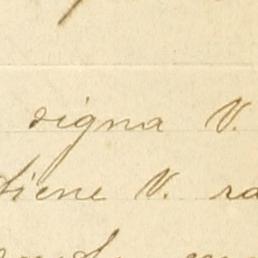 signa V.
tiene V. ra